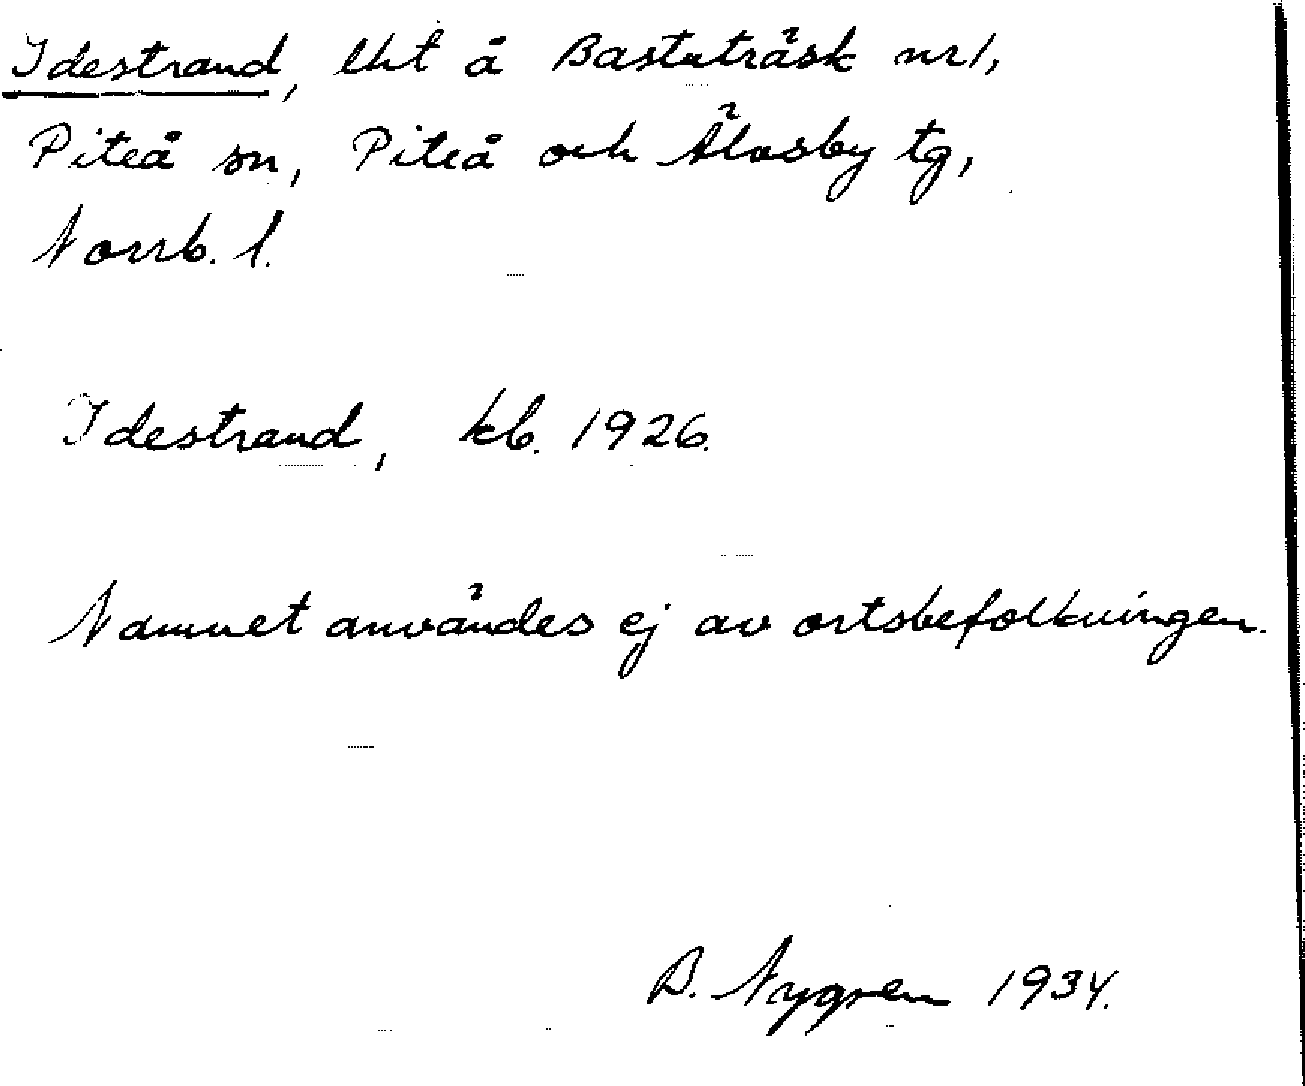 Idestrand, lht å Bastuträsk nr 1,
Piteå sn, Piteå och Älvsby tg,
Norrb. l.
Idestrand, kb. 1926.
Namnet användes ej av ortsbefolkningen.
B. Nygren 1934.